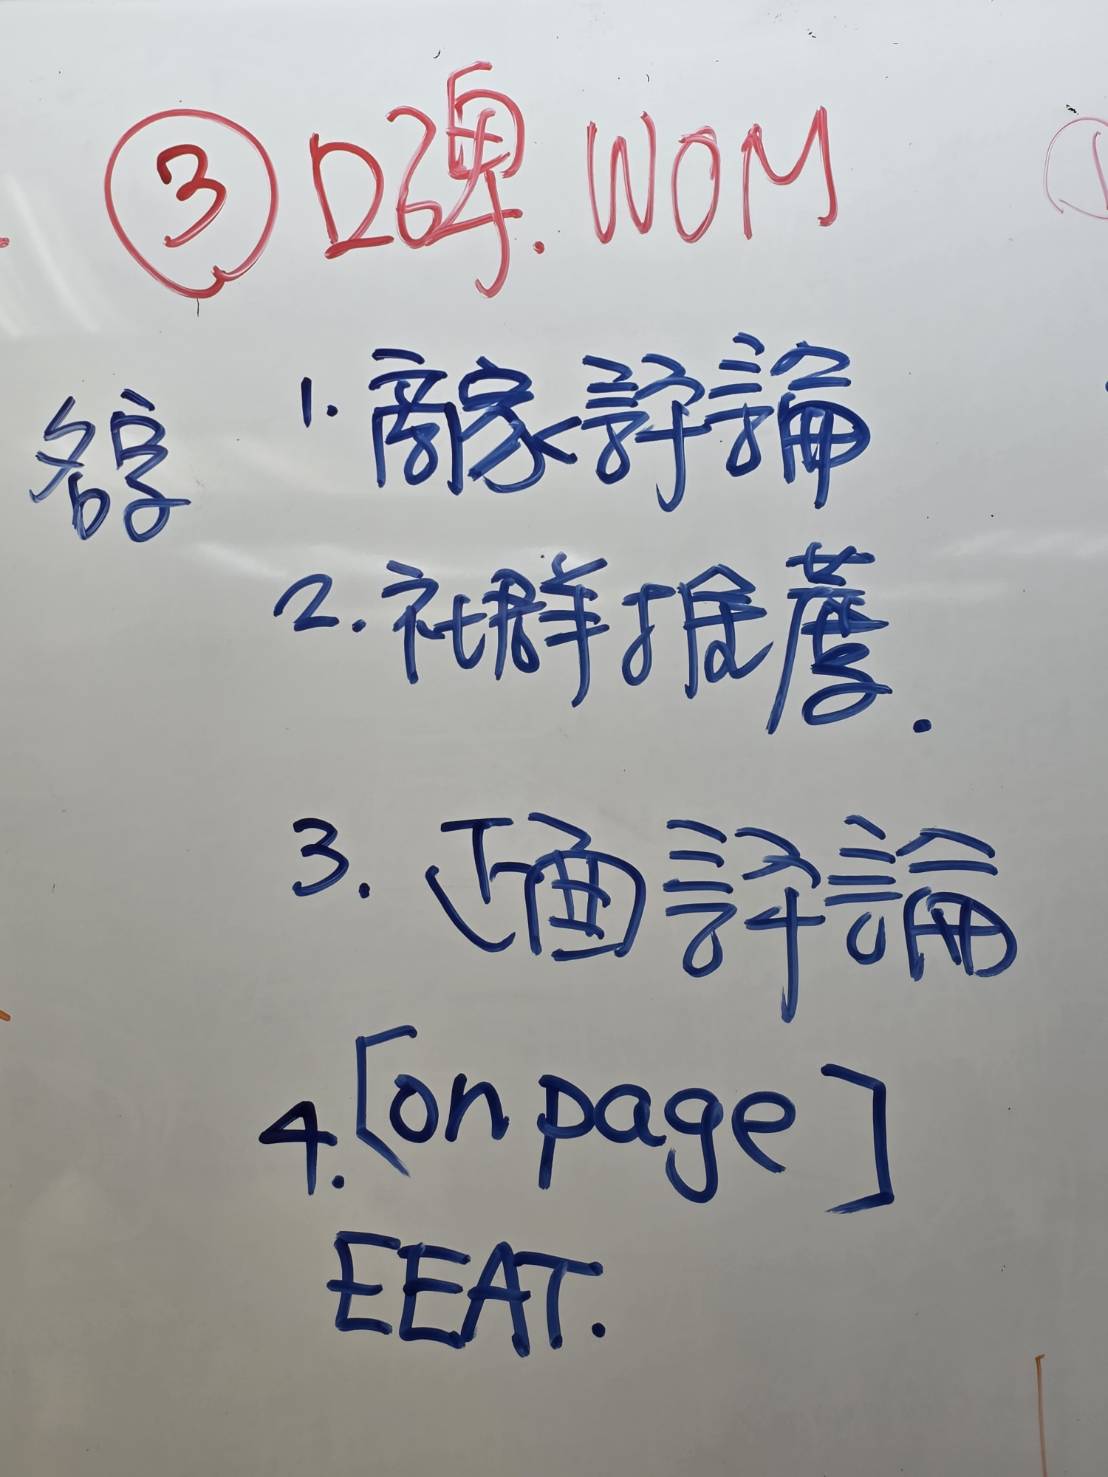 ③ 口碑. WOM
1. 商家評論
2. 社群推薦.
3. 正面評論
4. [on page]
EEAT.